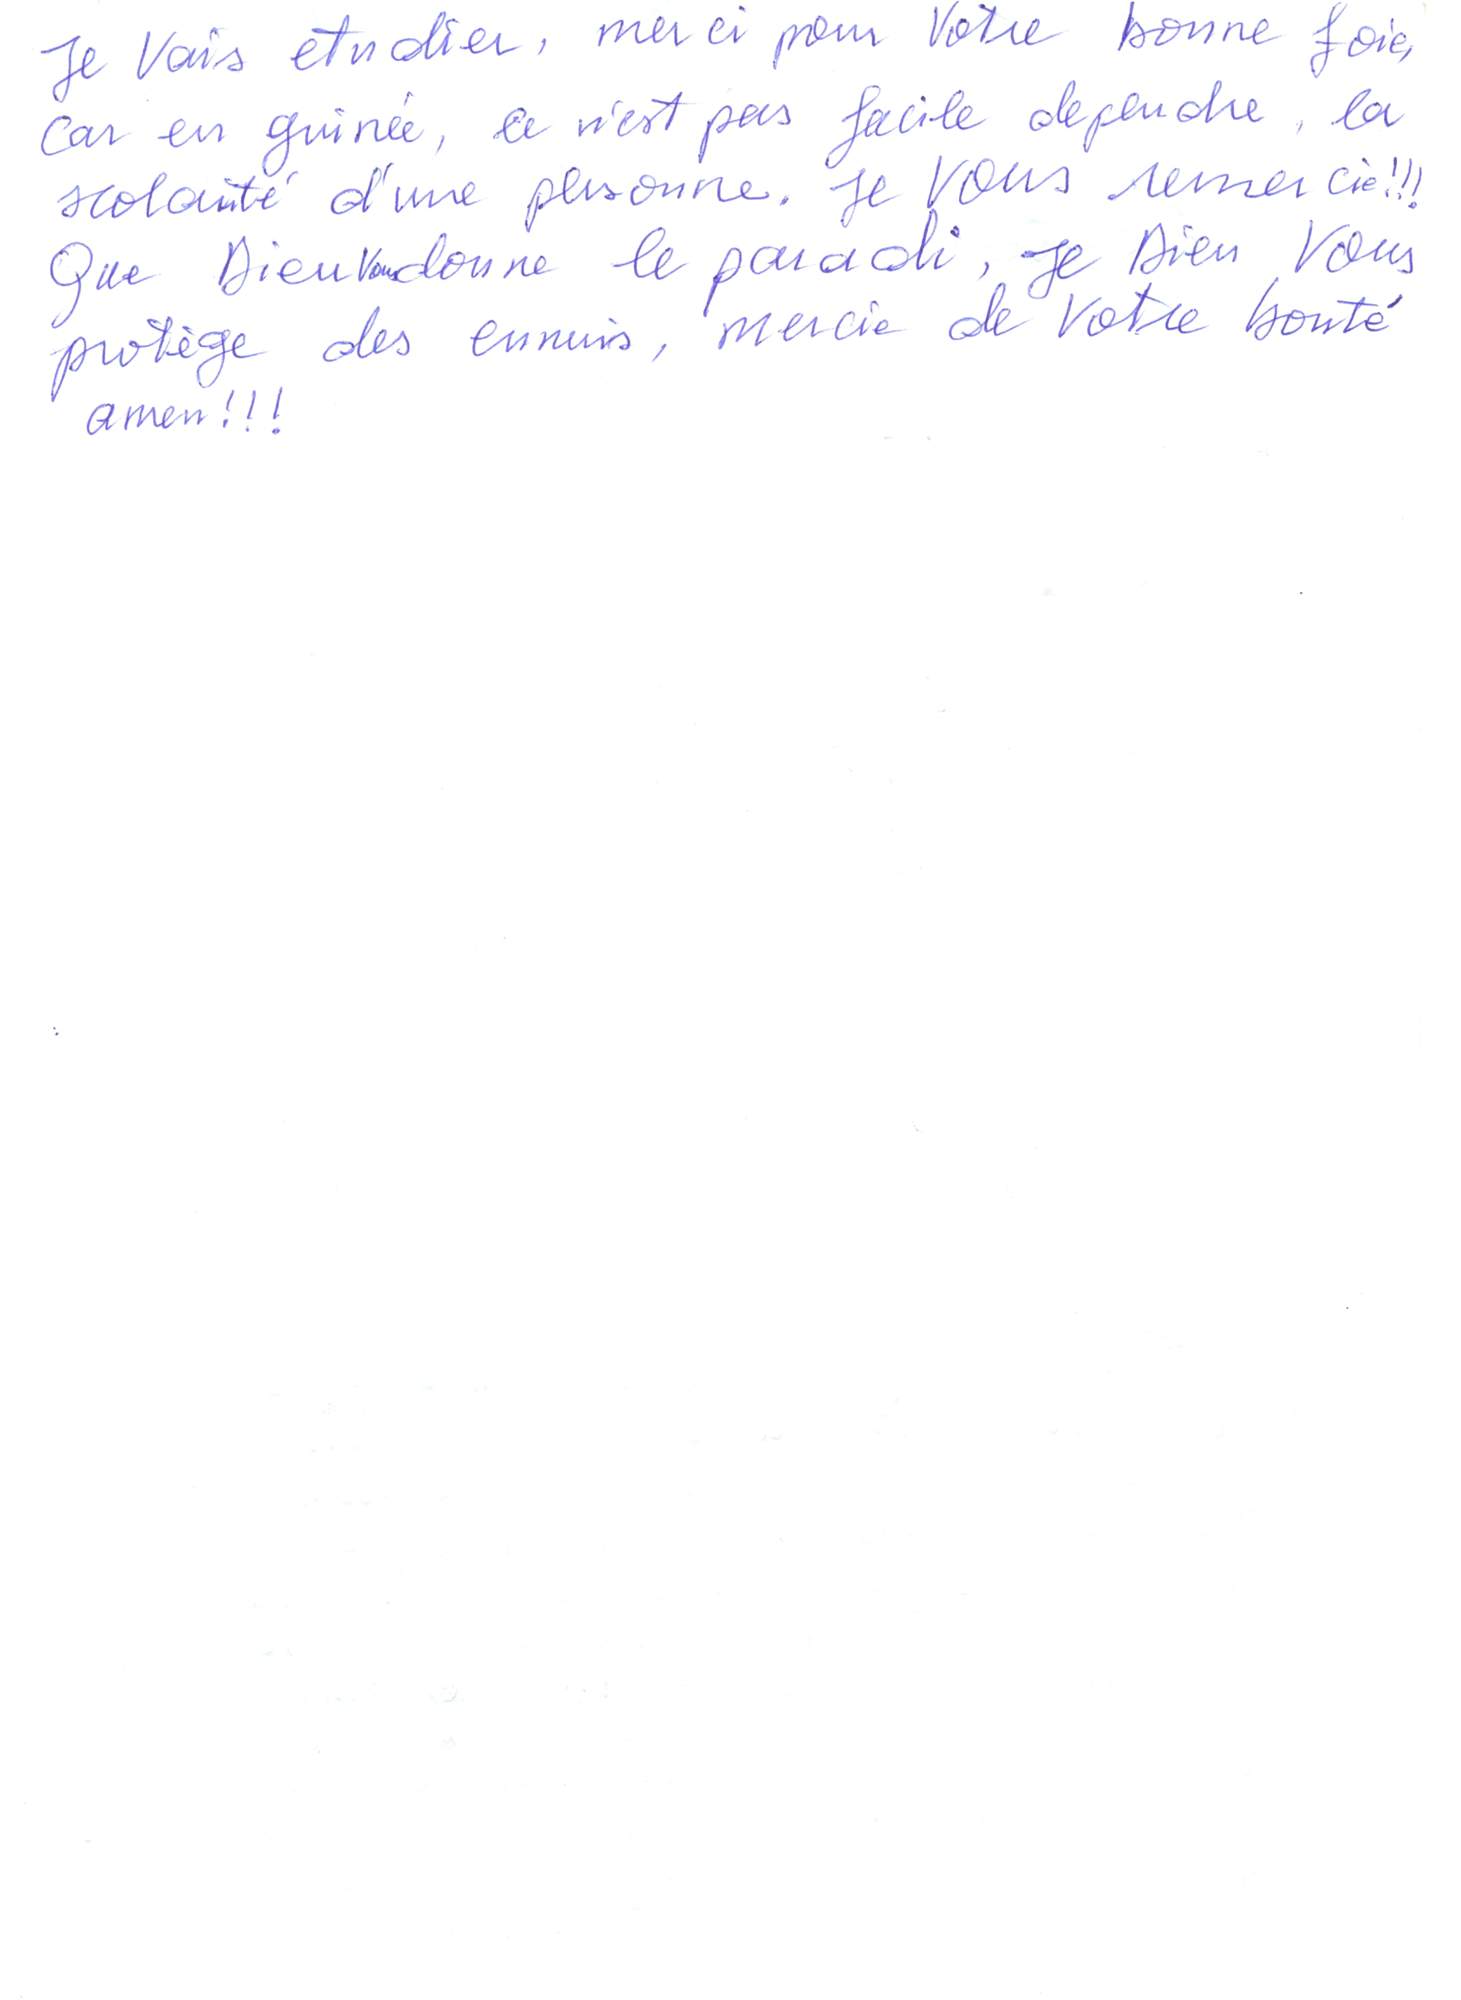 Je Vais etudier, merci pour Votre bonne foie,
Car en guinée, ce n'est pas facile dependre, la
scolarité d'une personne. Je Vous remercie!!!
Que Dieu Vous donne le paradi, Je Dieu Vous
protège des ennuis, mercie de Votre bonté
amen!!!